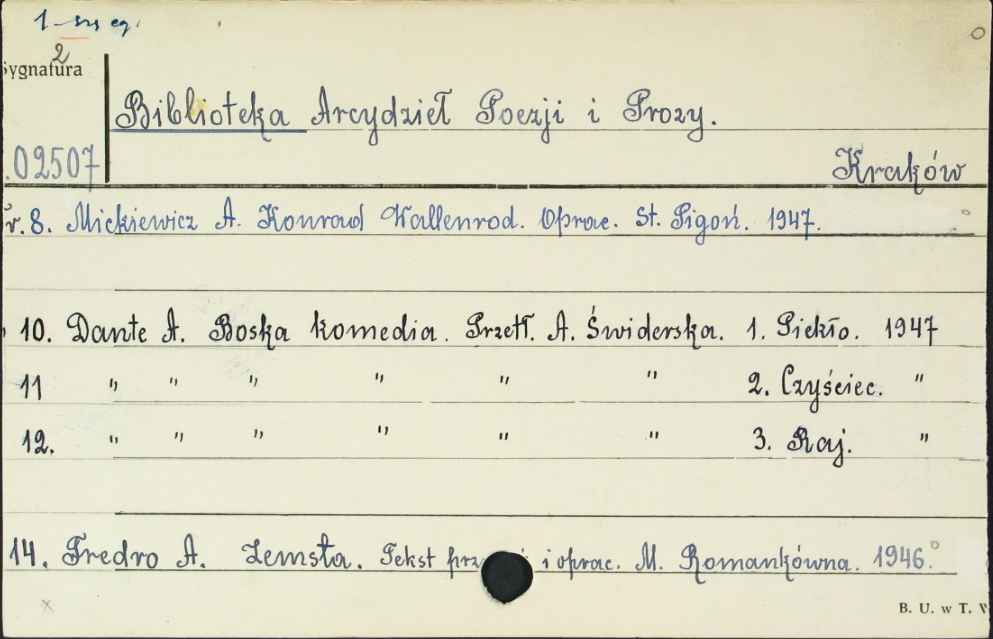 1-szy eg.
2
Sygnatura
Biblioteka Arcydzieł Poezji i Prozy.
02507
Kraków
r. 8. Mickiewicz A. Konrad Wallenrod. Oprac. St. Pigoń. 1947.
10. Dante A. Boska komedia. Przetł. A. Świderska. 1. Piekło. 1947
11 " " " " " " 2. Czyściec. "
12. " " " " " " 3. Raj. "
14. Fredro A. Zemsta. Tekst i oprac. M. Romankówna. 1946.
B. U. w T.